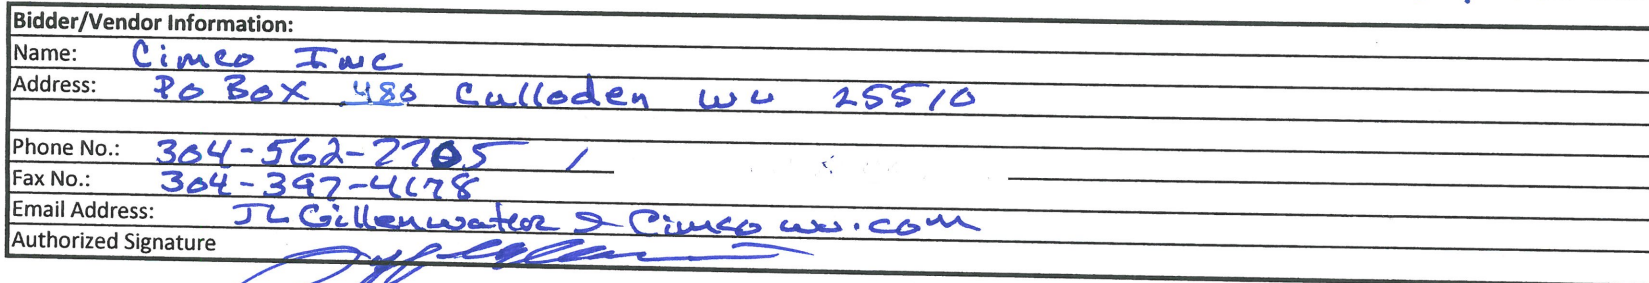 Bidder/Vendor Information:
Name: Cimco Inc
Address: Po Box 480 Culloden WV 25510
Phone No.: 304-562-2705 /
Fax No.: 304-397-4178
Email Address: JLGillenwater @ Cimcowv.com
Authorized Signature